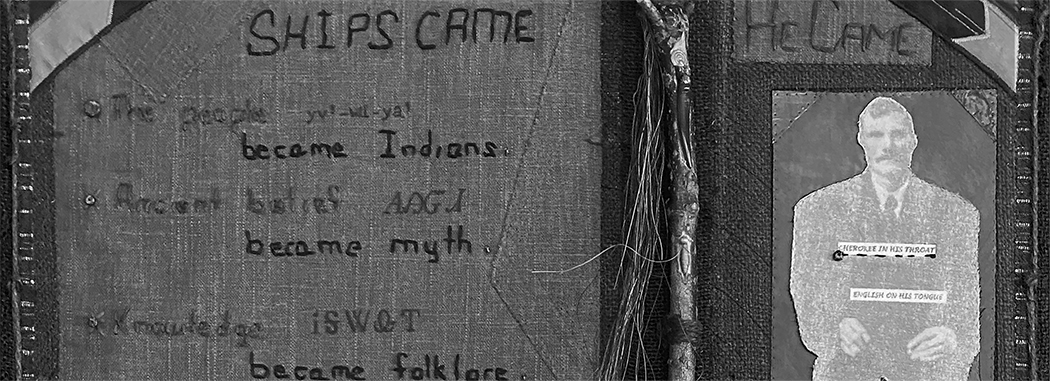 SHIPS CAME
The people yv'-wi-ya'
became Indians.
Ancient belief
became myth.
Knowledge iSW@T
became folklore.
He CAME
CHEROKEE IN HIS THROAT
ENGLISH ON HIS TONGUE